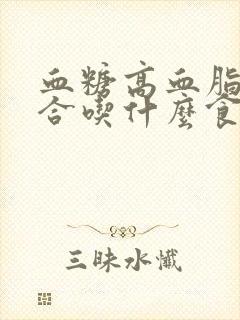 血糖高血脂
合喫什麼食
三昧水懺